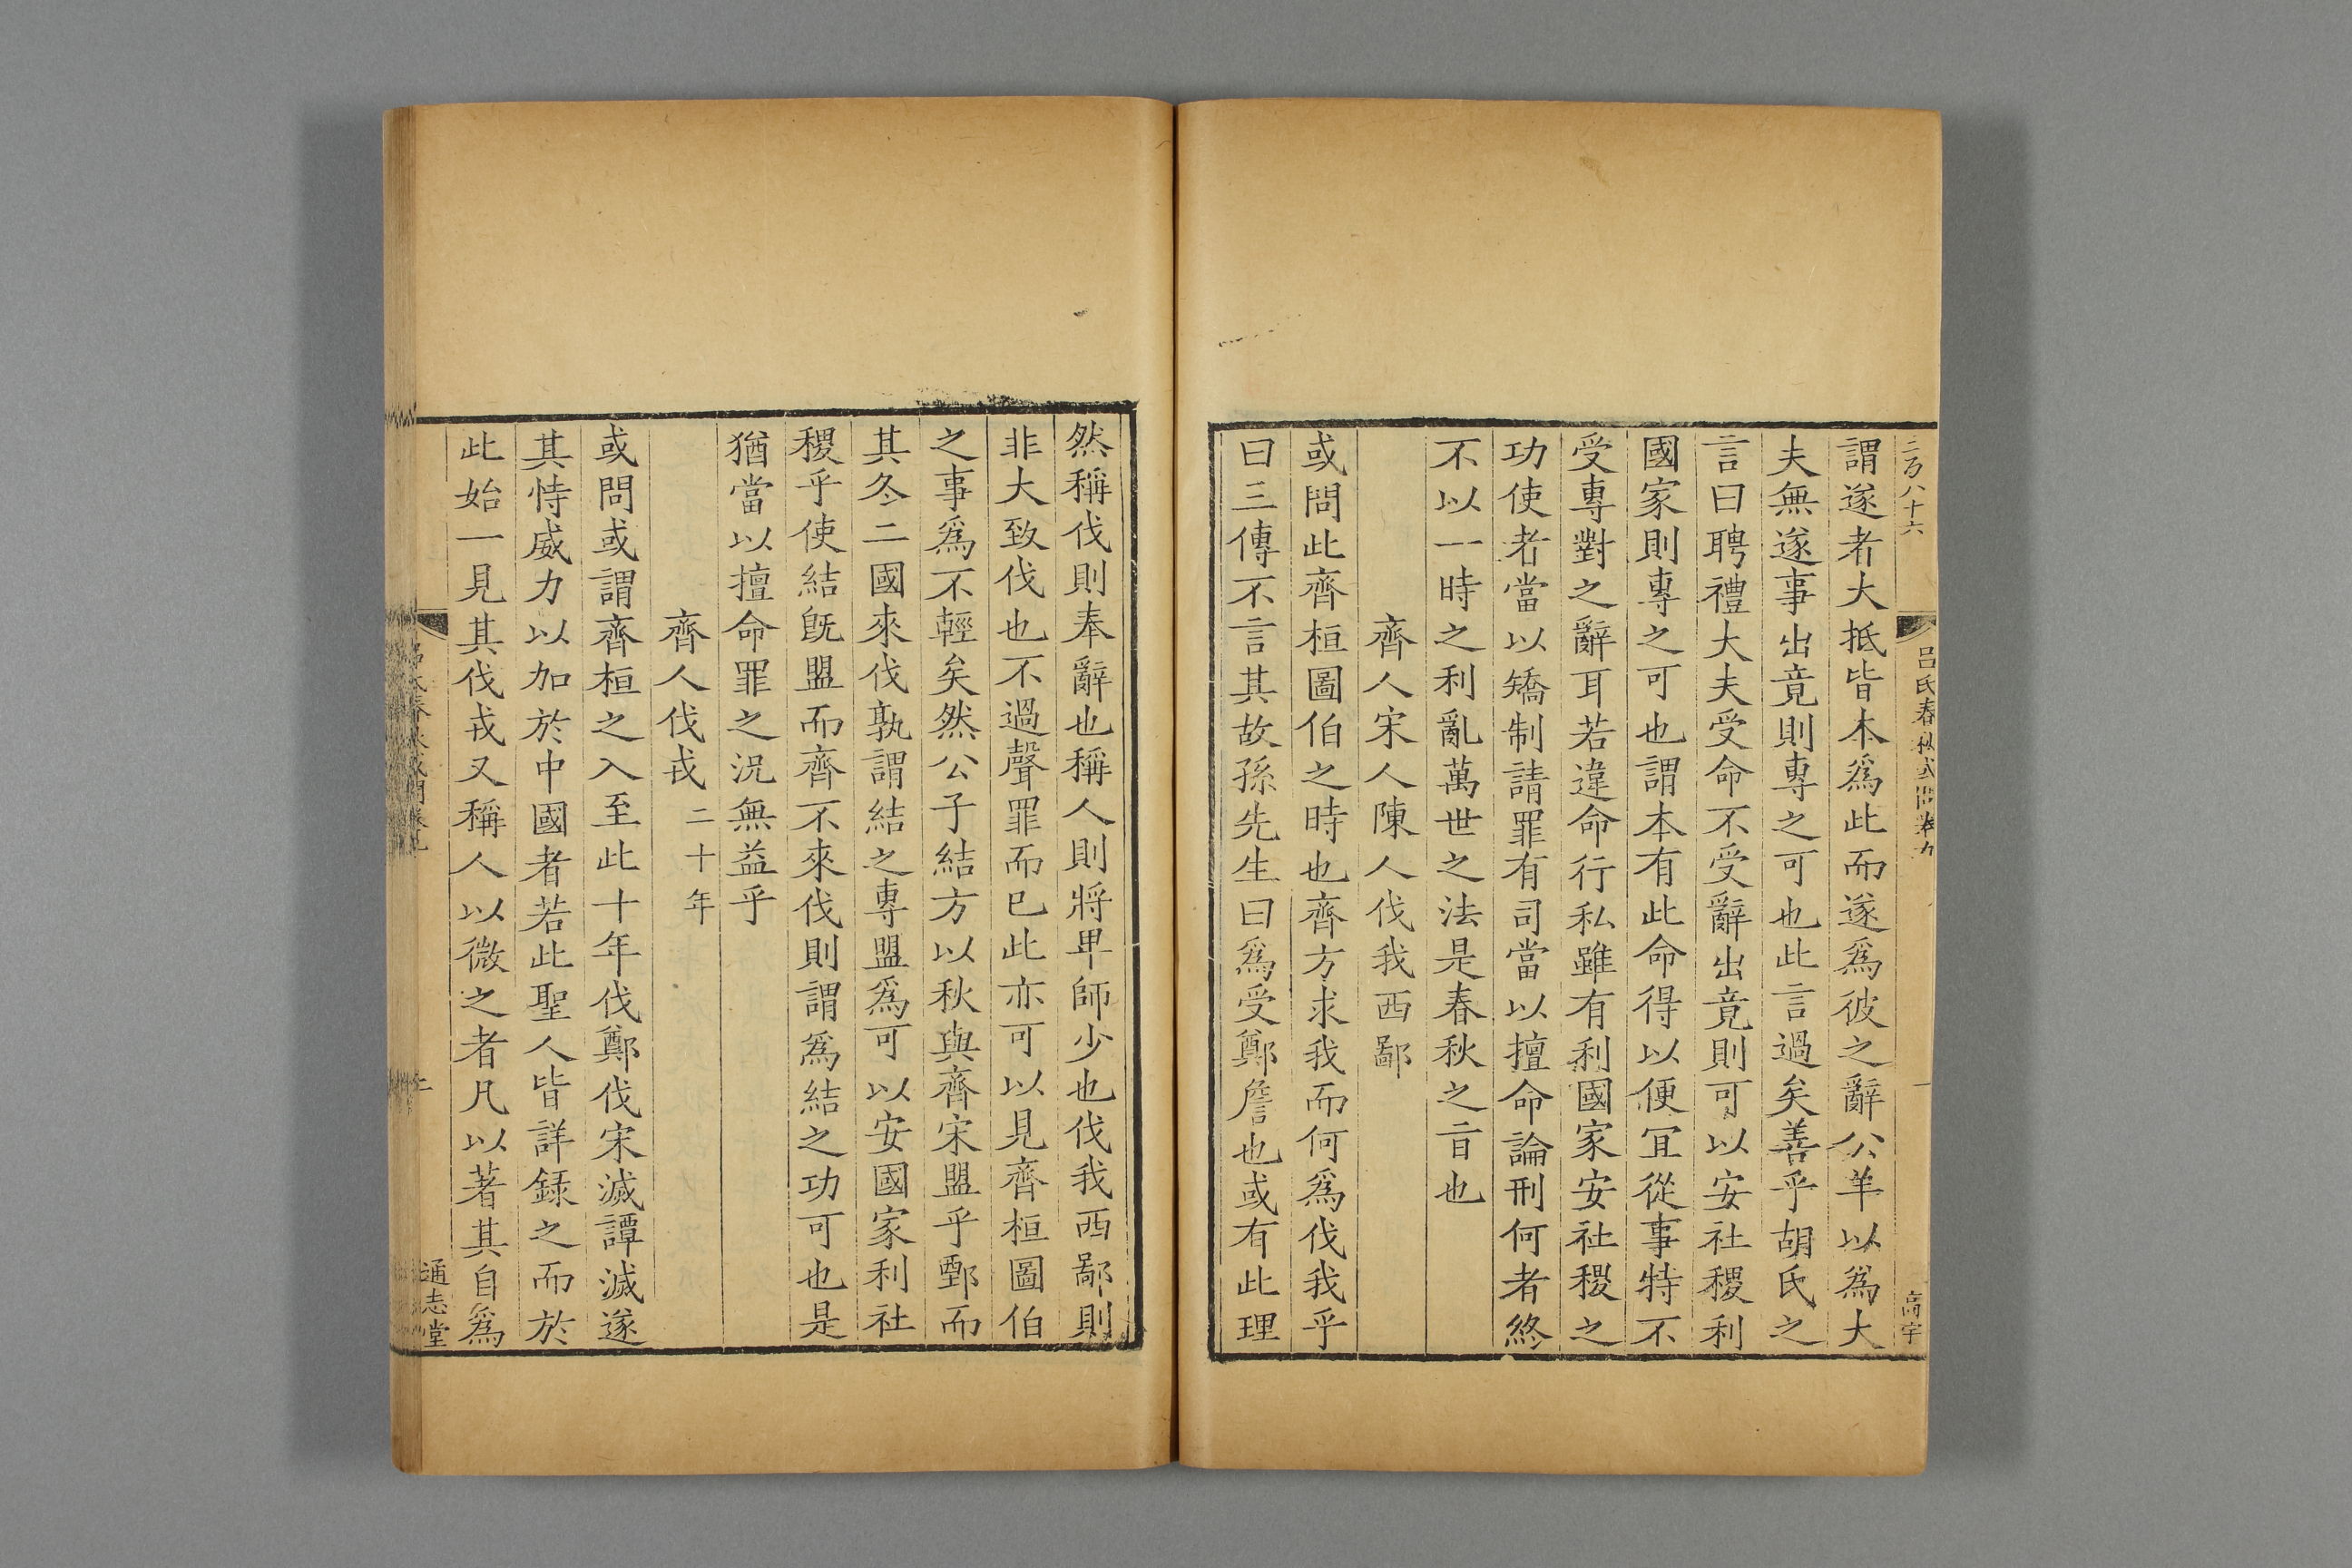 呂氏春秋或問卷九
謂遂者大抵皆本爲此而遂爲彼之辭公羊以爲大
夫無遂事出竟則專之可也此言過矣善乎胡氏之
言曰聘禮大夫受命不受辭出竟則可以安社稷利
國家則專之可也謂本有此命得以便宜從事特不
受專對之辭耳若違命行私雖有利國家安社稷之
功使者當以矯制請罪有司當以擅命論刑何者終
不以一時之利亂萬世之法是春秋之旨也
齊人宋人陳人伐我西鄙
或問此齊桓圖伯之時也齊方求我而何爲伐我乎
曰三傳不言其故孫先生曰爲受鄭詹也或有此理
然稱伐則奉辭也稱人則將卑師少也伐我西鄙則
非大致伐也不過聲罪而已此亦可以見齊桓圖伯
之事爲不輕矣然公子結方以秋與齊宋盟乎鄄而
其冬二國來伐孰謂結之專盟爲可以安國家利社
稷乎使結旣盟而齊不來伐則謂爲結之功可也是
猶當以擅命罪之況無益乎
齊人伐戎二十年
或問或謂齊桓之入至此十年伐鄭伐宋滅譚滅遂
其恃威力以加於中國者若此聖人皆詳録之而於
此始一見其伐戎又稱人以微之者凡以著其自爲
通志堂